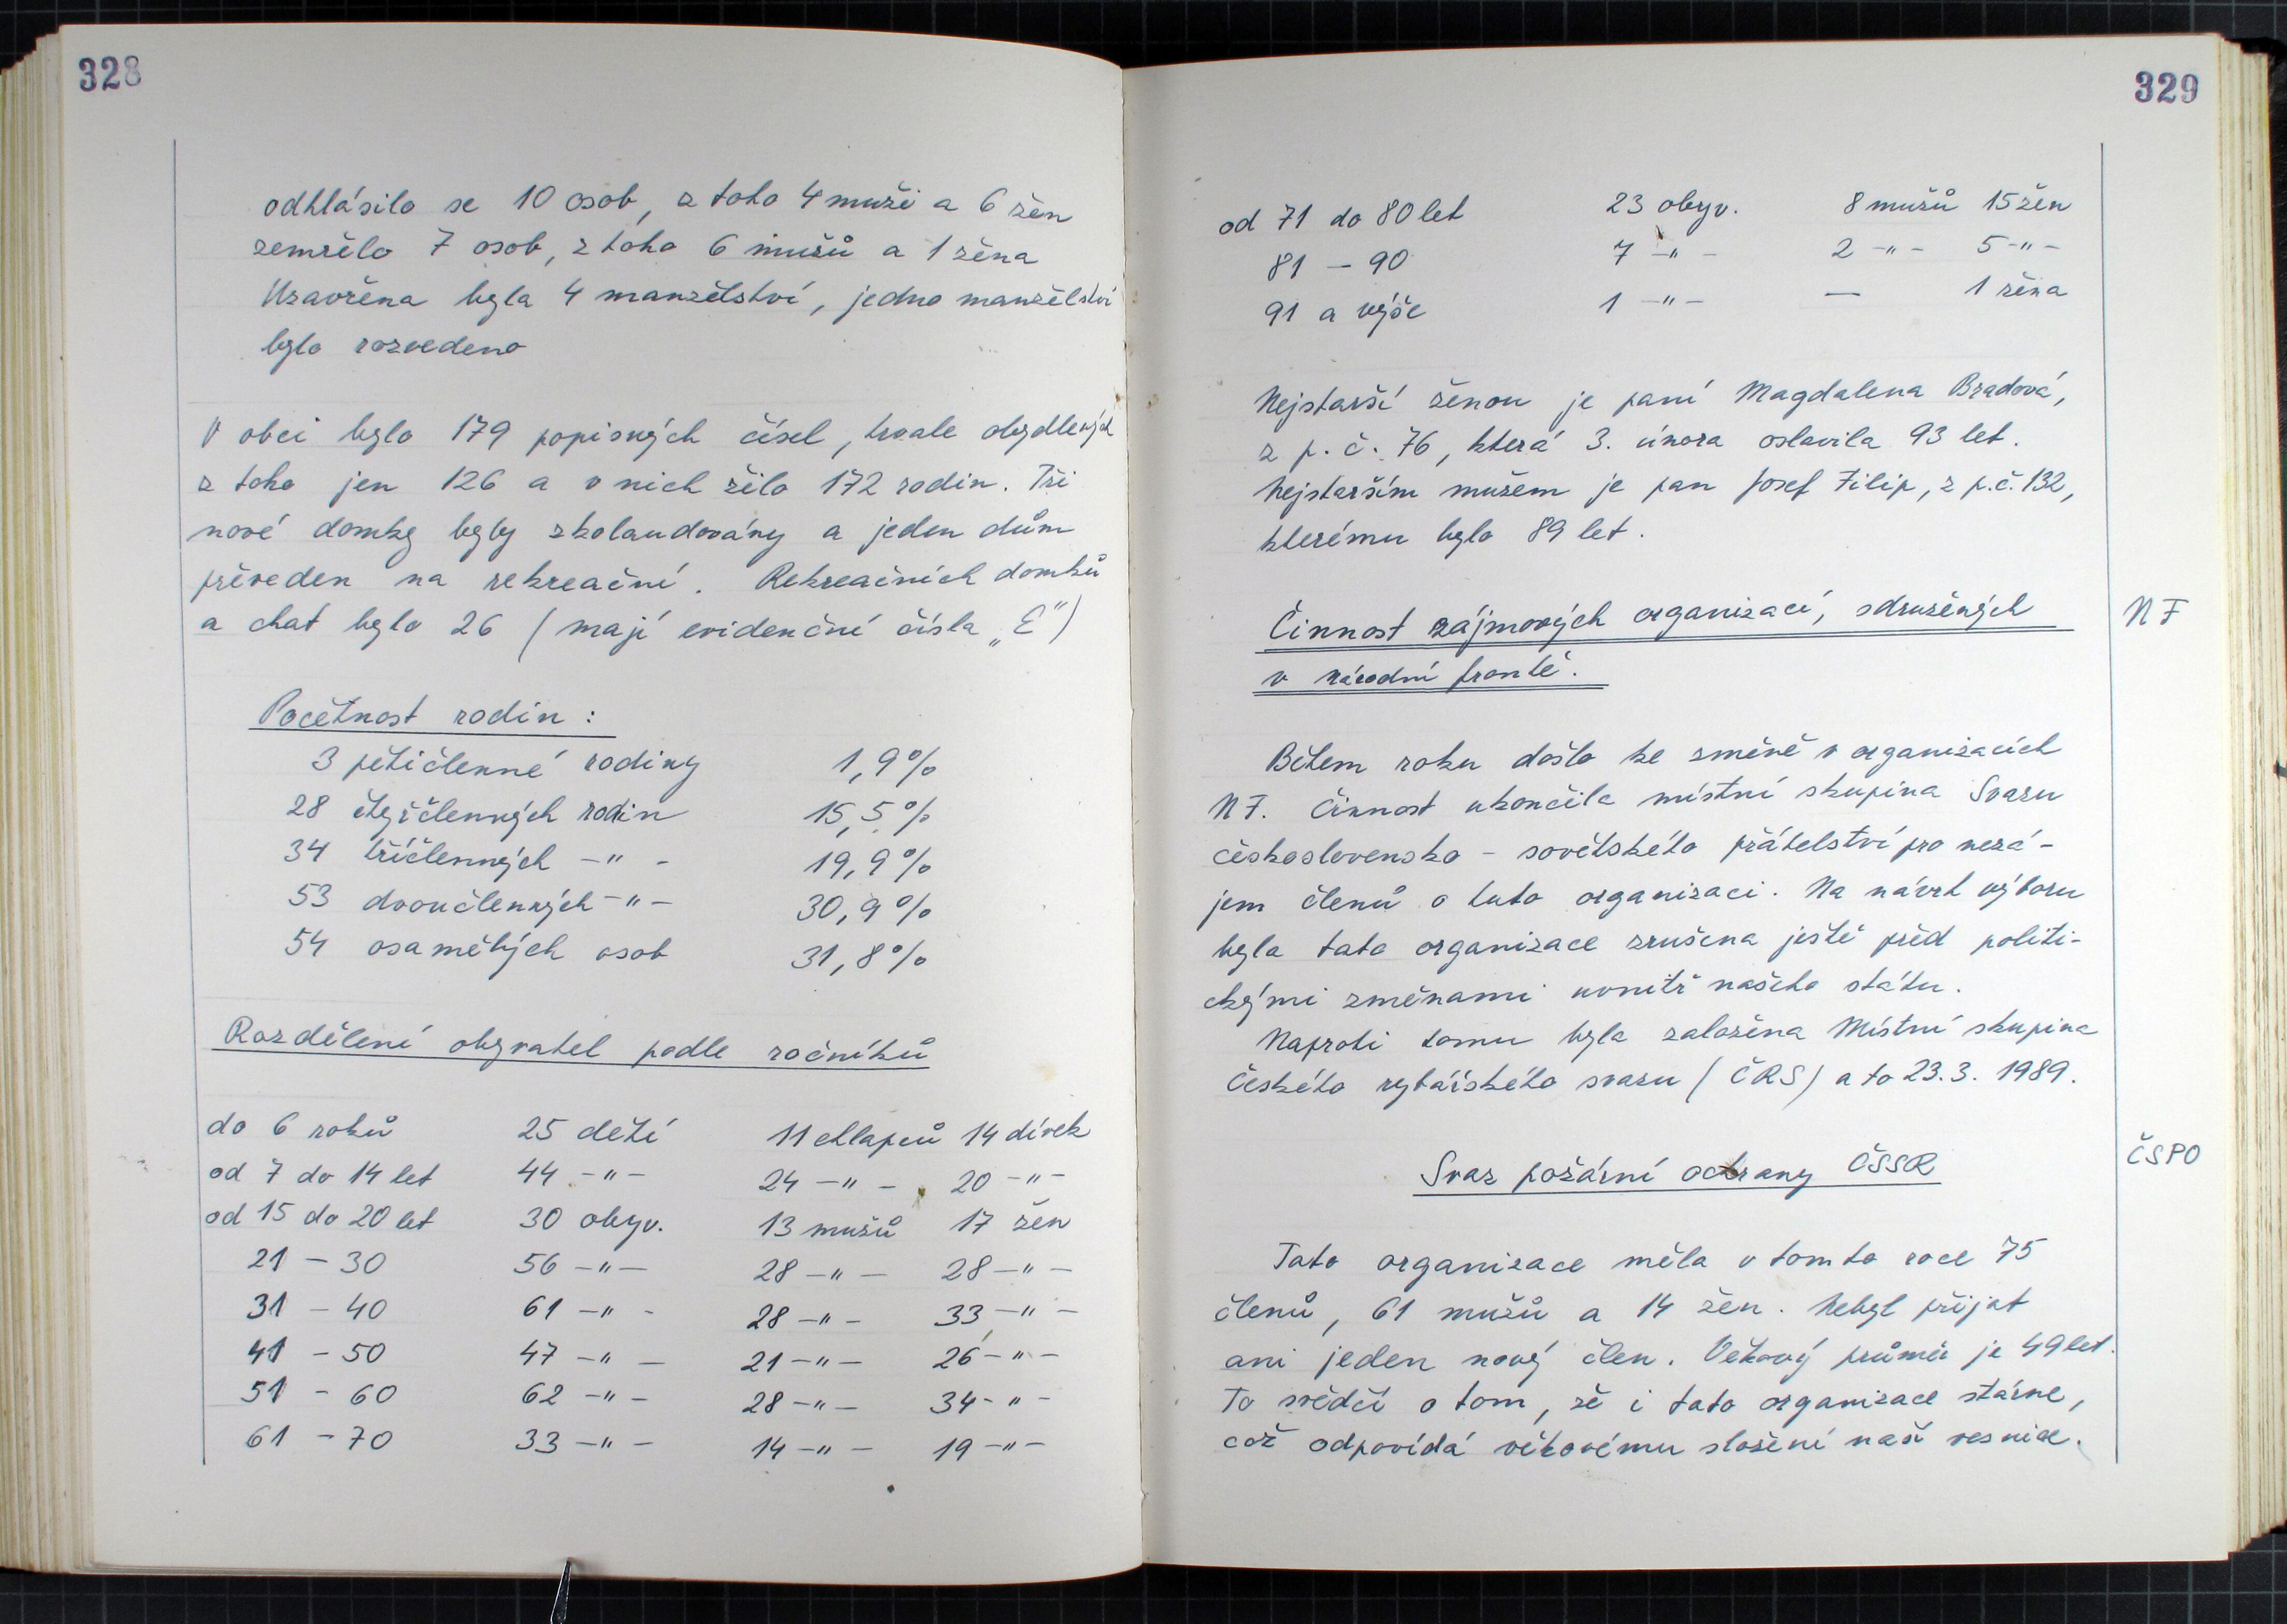 328
odhlásilo se 10 osob, z toho 4 muži a 6 žen
zemřelo 7 osob, z toho 6 mužů a 1 žena
Uzavřena byla 4 manželství, jedno manželství
bylo rozvedeno
V obci bylo 179 popisných čísel, trvale obydlených
z toho jen 126 a v nich žilo 172 rodin. Tři
nové domky byly zkolaudovány a jeden dům
převeden na rekreační. Rekreačních domků
a chat bylo 26 (mají evidenční čísla „E")
Početnost rodin :
3 pětičlenné rodiny 1,9%
28 čtyřčlenných rodin 15,5%
34 tříčlenných -"- 19,9%
53 dvoučlenných -"- 30,9%
54 osamělých osob 31,8%
Rozdělení obyvatel podle ročníků
do 6 roků 25 dětí 11 chlapců 14 dívek
od 7 do 14 let 44 -"- 24 -"- 20 -"-
od 15 do 20 let 30 obyv. 13 mužů 17 žen
21 - 30 56 -"- 28 -"- 28 -"-
31 - 40 61 -"- 28 -"- 33 -"-
41 - 50 47 -"- 21 -"- 26 -"-
51 - 60 62 -"- 28 -"- 34 -"-
61 - 70 33 -"- 14 -"- 19 -"-
329
od 71 do 80 let 23 obyv. 8 mužů 15 žen
81 - 90 7 -"- 2 -"- 5 -"-
91 a výše 1 -"- — 1 žena
Nejstarší ženou je paní Magdalena Bradová,
z p. č. 76, která 3. února oslavila 93 let.
Nejstarším mužem je pan Josef Filip, z p.č. 132,
kterému bylo 89 let.
Činnost zájmových organizací, sdružených
v národní frontě.
NF
Během roku došlo ke změně v organizacích
NF. Činnost ukončila místní skupina Svazu
československo - sovětského přátelství pro nezá-
jem členů o tuto organizaci. Na návrh výboru
byla tato organizace zrušena ještě před politi-
ckými změnami uvnitř našeho státu.
Naproti tomu byla založena Místní skupina
Českého rybářského svazu (ČRS) a to 23.3. 1989.
Svaz požární ochrany ČSSR
ČSPO
Tato organizace měla v tomto roce 75
členů, 61 mužů a 14 žen. Nebyl přijat
ani jeden nový člen. Věkový průměr je 49 let.
To svědčí o tom, že i tato organizace stárne,
což odpovídá věkovému složení naší vesnice.